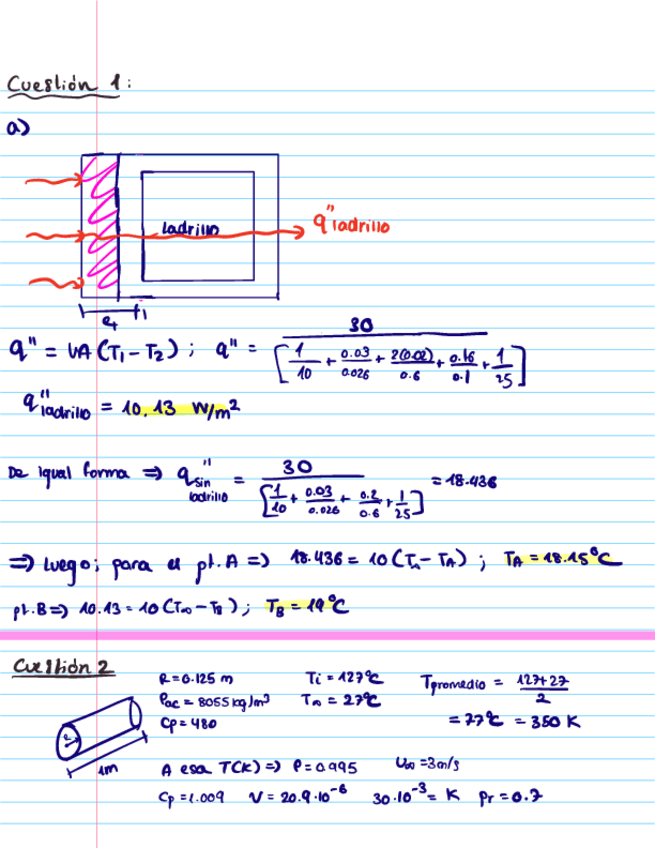 Cuestión 1:
a)
ladrillo
q" ladrillo
e₁
q" = UA (T₁ - T₂) ; q" = 30 / [1/10 + 0.03/0.026 + 2(0.02)/0.6 + 0.16/0.1 + 1/25]
q" ladrillo = 10.13 W/m²
De igual forma ⇒ q" sin ladrillo = 30 / [1/10 + 0.03/0.026 + 0.2/0.6 + 1/25] = 18.436
⇒ Luego; para el pt. A ⇒ 18.436 = 10 (T∞ - TA) ; TA = 18.15°C
pt. B ⇒ 10.13 = 10 (T∞ - TB) ; TB = 19°C
Cuestión 2
R = 0.125 m Ti = 127°C Tpromedio = 127+27 / 2
ρac = 8055 kg/m³ T∞ = 27°C = 77°C = 350 K
Cp = 480
1m
A esa T(K) ⇒ ρ = 0.995 U∞ = 3m/s
Cp = 1.009 V = 20.9·10⁻⁶ 30·10⁻³ = K Pr = 0.7